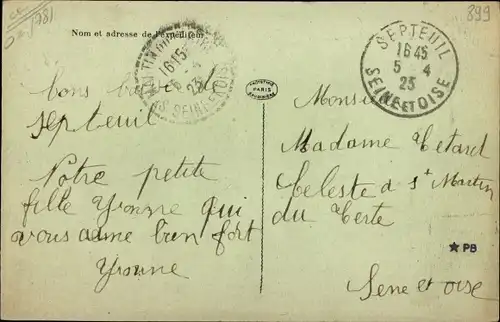 (181
899
Nom et adresse de l'expéditeur
16 15
5 - 4
25
SEINE ET OISE
SEPTEUIL
16 45
5 - 4
25
SEINE ET OISE
PARIS
bons
septeuil
Notre petite
fille Yvonne qui
vous aime bien fort
Yvonne
Monsieur
Madame Tetard
Celeste a St Martin
du Terte
Sene et oise
★ PB